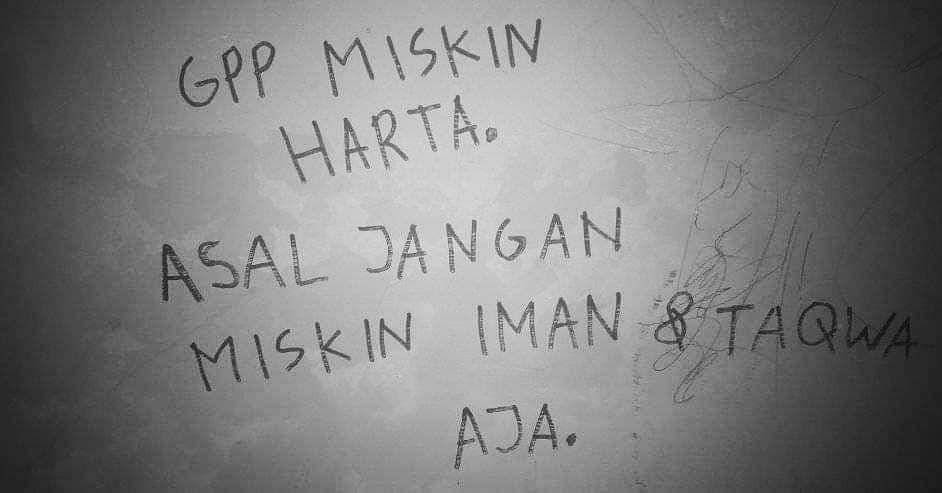 GPP MISKIN
HARTA.
ASAL JANGAN
MISKIN IMAN & TAQWA
AJA.